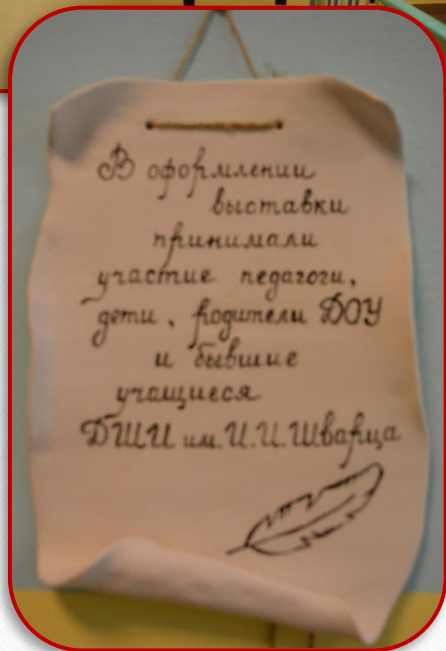 В оформлении
выставки
принимали
участие педагоги,
дети, родители ДОУ
и бывшие
учащиеся
ДШИ им. И.И. Шварца